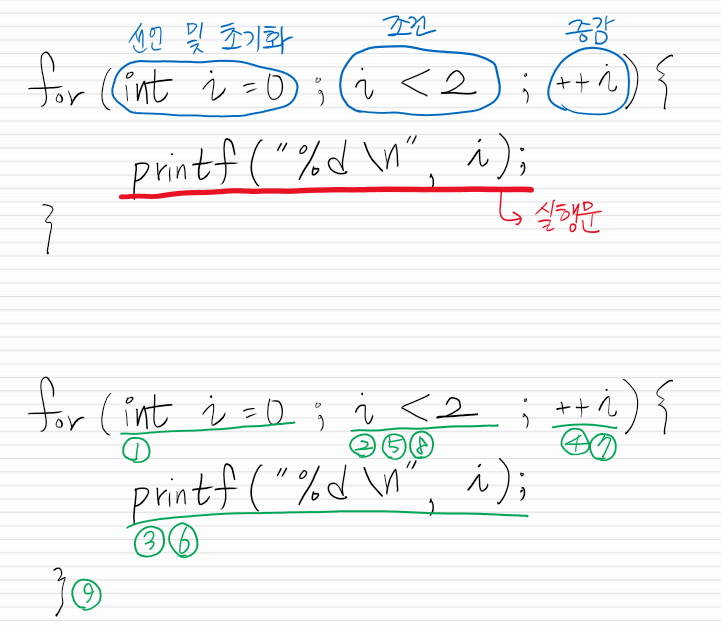 선언 및 초기화 조건 증감
for (int i = 0 ; i < 2 ; ++i) {
printf("%d \n", i);
→ 실행문
}
for (int i = 0 ; i < 2 ; ++i) {
① ② ⑤ ⑧ ④ ⑦
printf("%d \n", i);
③ ⑥
} ⑨